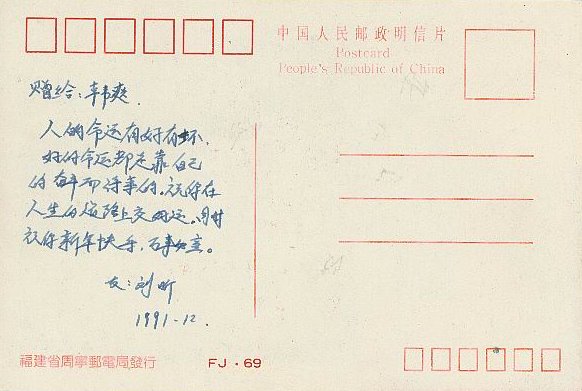 中国人民邮政明信片
Postcard
People's Republic of China
赠给:韩爽.
人的命运有好有坏.
好的命运都是靠自己
的奋斗而得来的.祝你在
人生的道路上交好运。同时
祝你新年快乐,百事如意。
友:刘昕
1991-12.
福建省周寧郵電局發行
FJ·69